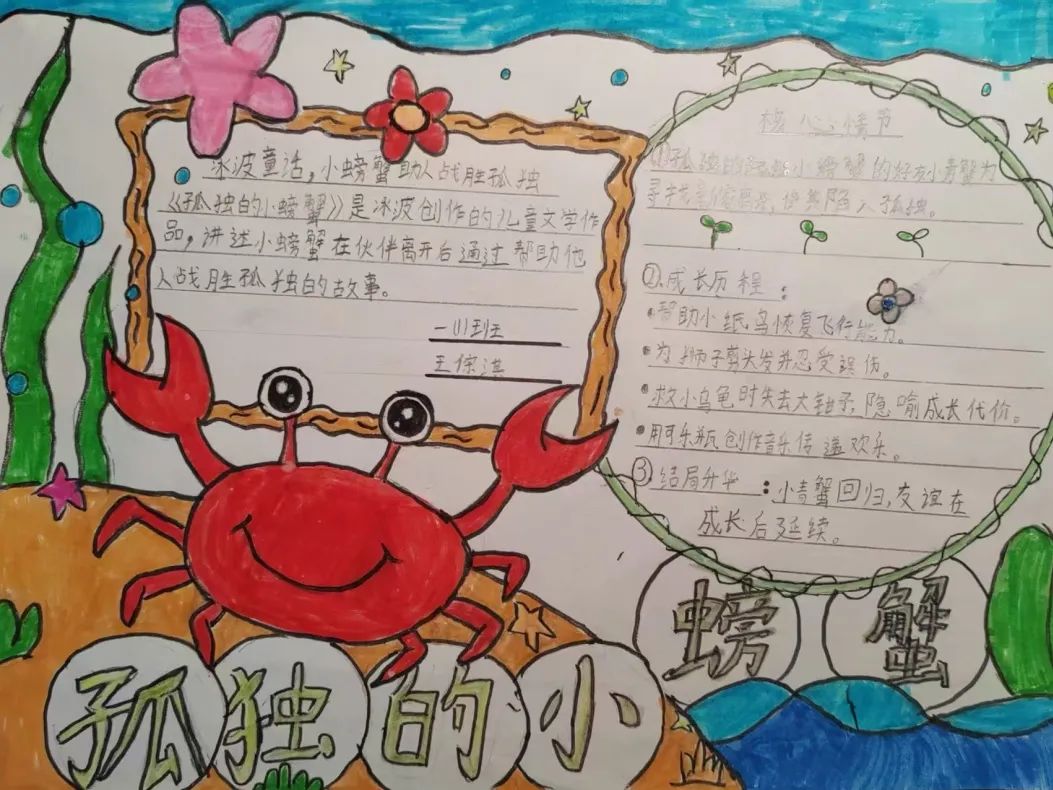 冰波童话，小螃蟹助人战胜孤独
《孤独的小螃蟹》是冰波创作的儿童文学作
品，讲述小螃蟹在伙伴离开后通过帮助他
人战胜孤独的故事。
一川班
核心情节
①孤独的 小螃蟹的好友小青蟹为
寻找 离 使其陷入孤独。
②成长历程：
•帮助小纸鸟恢复飞行能力。
•为狮子剪头发并忍受误伤。
•救小乌龟时失去大钳子，隐喻成长代价。
•用可乐瓶创作音乐传递欢乐。
③结局升华：小青蟹回归，友谊在
成长后延续。
孤独的小
螃蟹